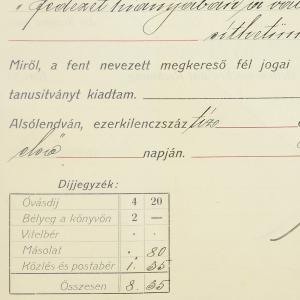 fedezet hiányában a
Miről, a fent nevezett megkereső fél jogai
tanusitványt kiadtam.
Alsólendván, ezerkilenczszáz tíz
első napján.
Díjjegyzék:
Óvásdíj 4 20
Bélyeg a könyvön 2 —
Vitelbér . .
Másolat . 80
Közlés és postabér 1. 35
Összesen 8. 35